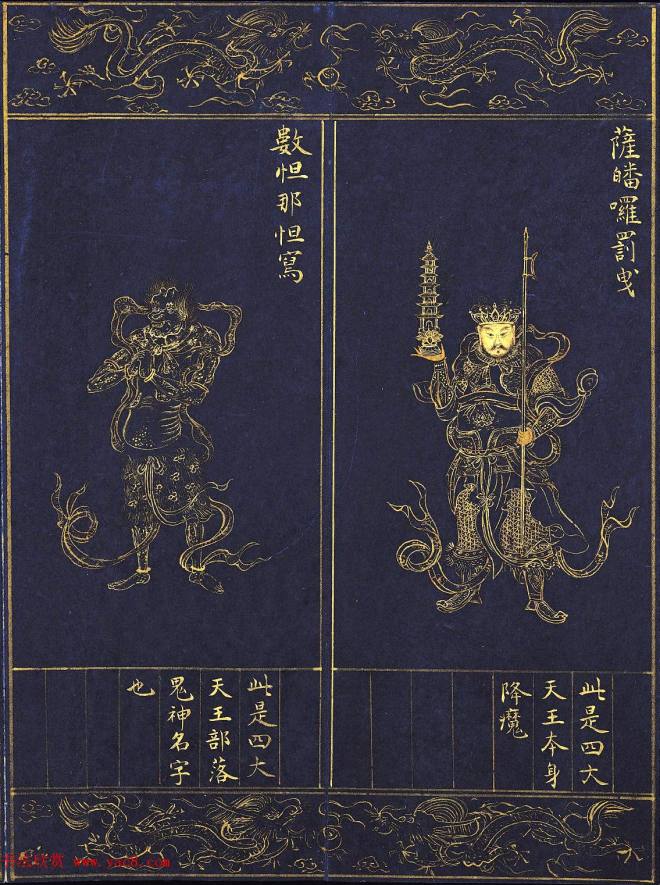 薩皤囉罰曳
此是四大
天王本身
降魔
數怛那怛寫
此是四大
天王部落
鬼神名字
也